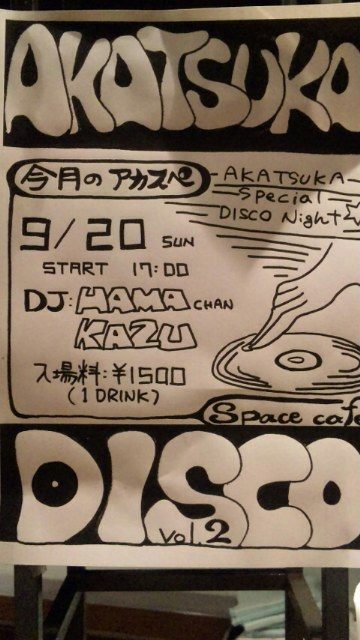 AKATSUKA
今月のアカスペ
-AKATSUKA-
Special
DISCO Night
9/20 SUN
START 17:00
DJ: HAMA CHAN
KAZU
入場料:¥1500
(1 DRINK)
Space cafe
DISCO
Vol.2